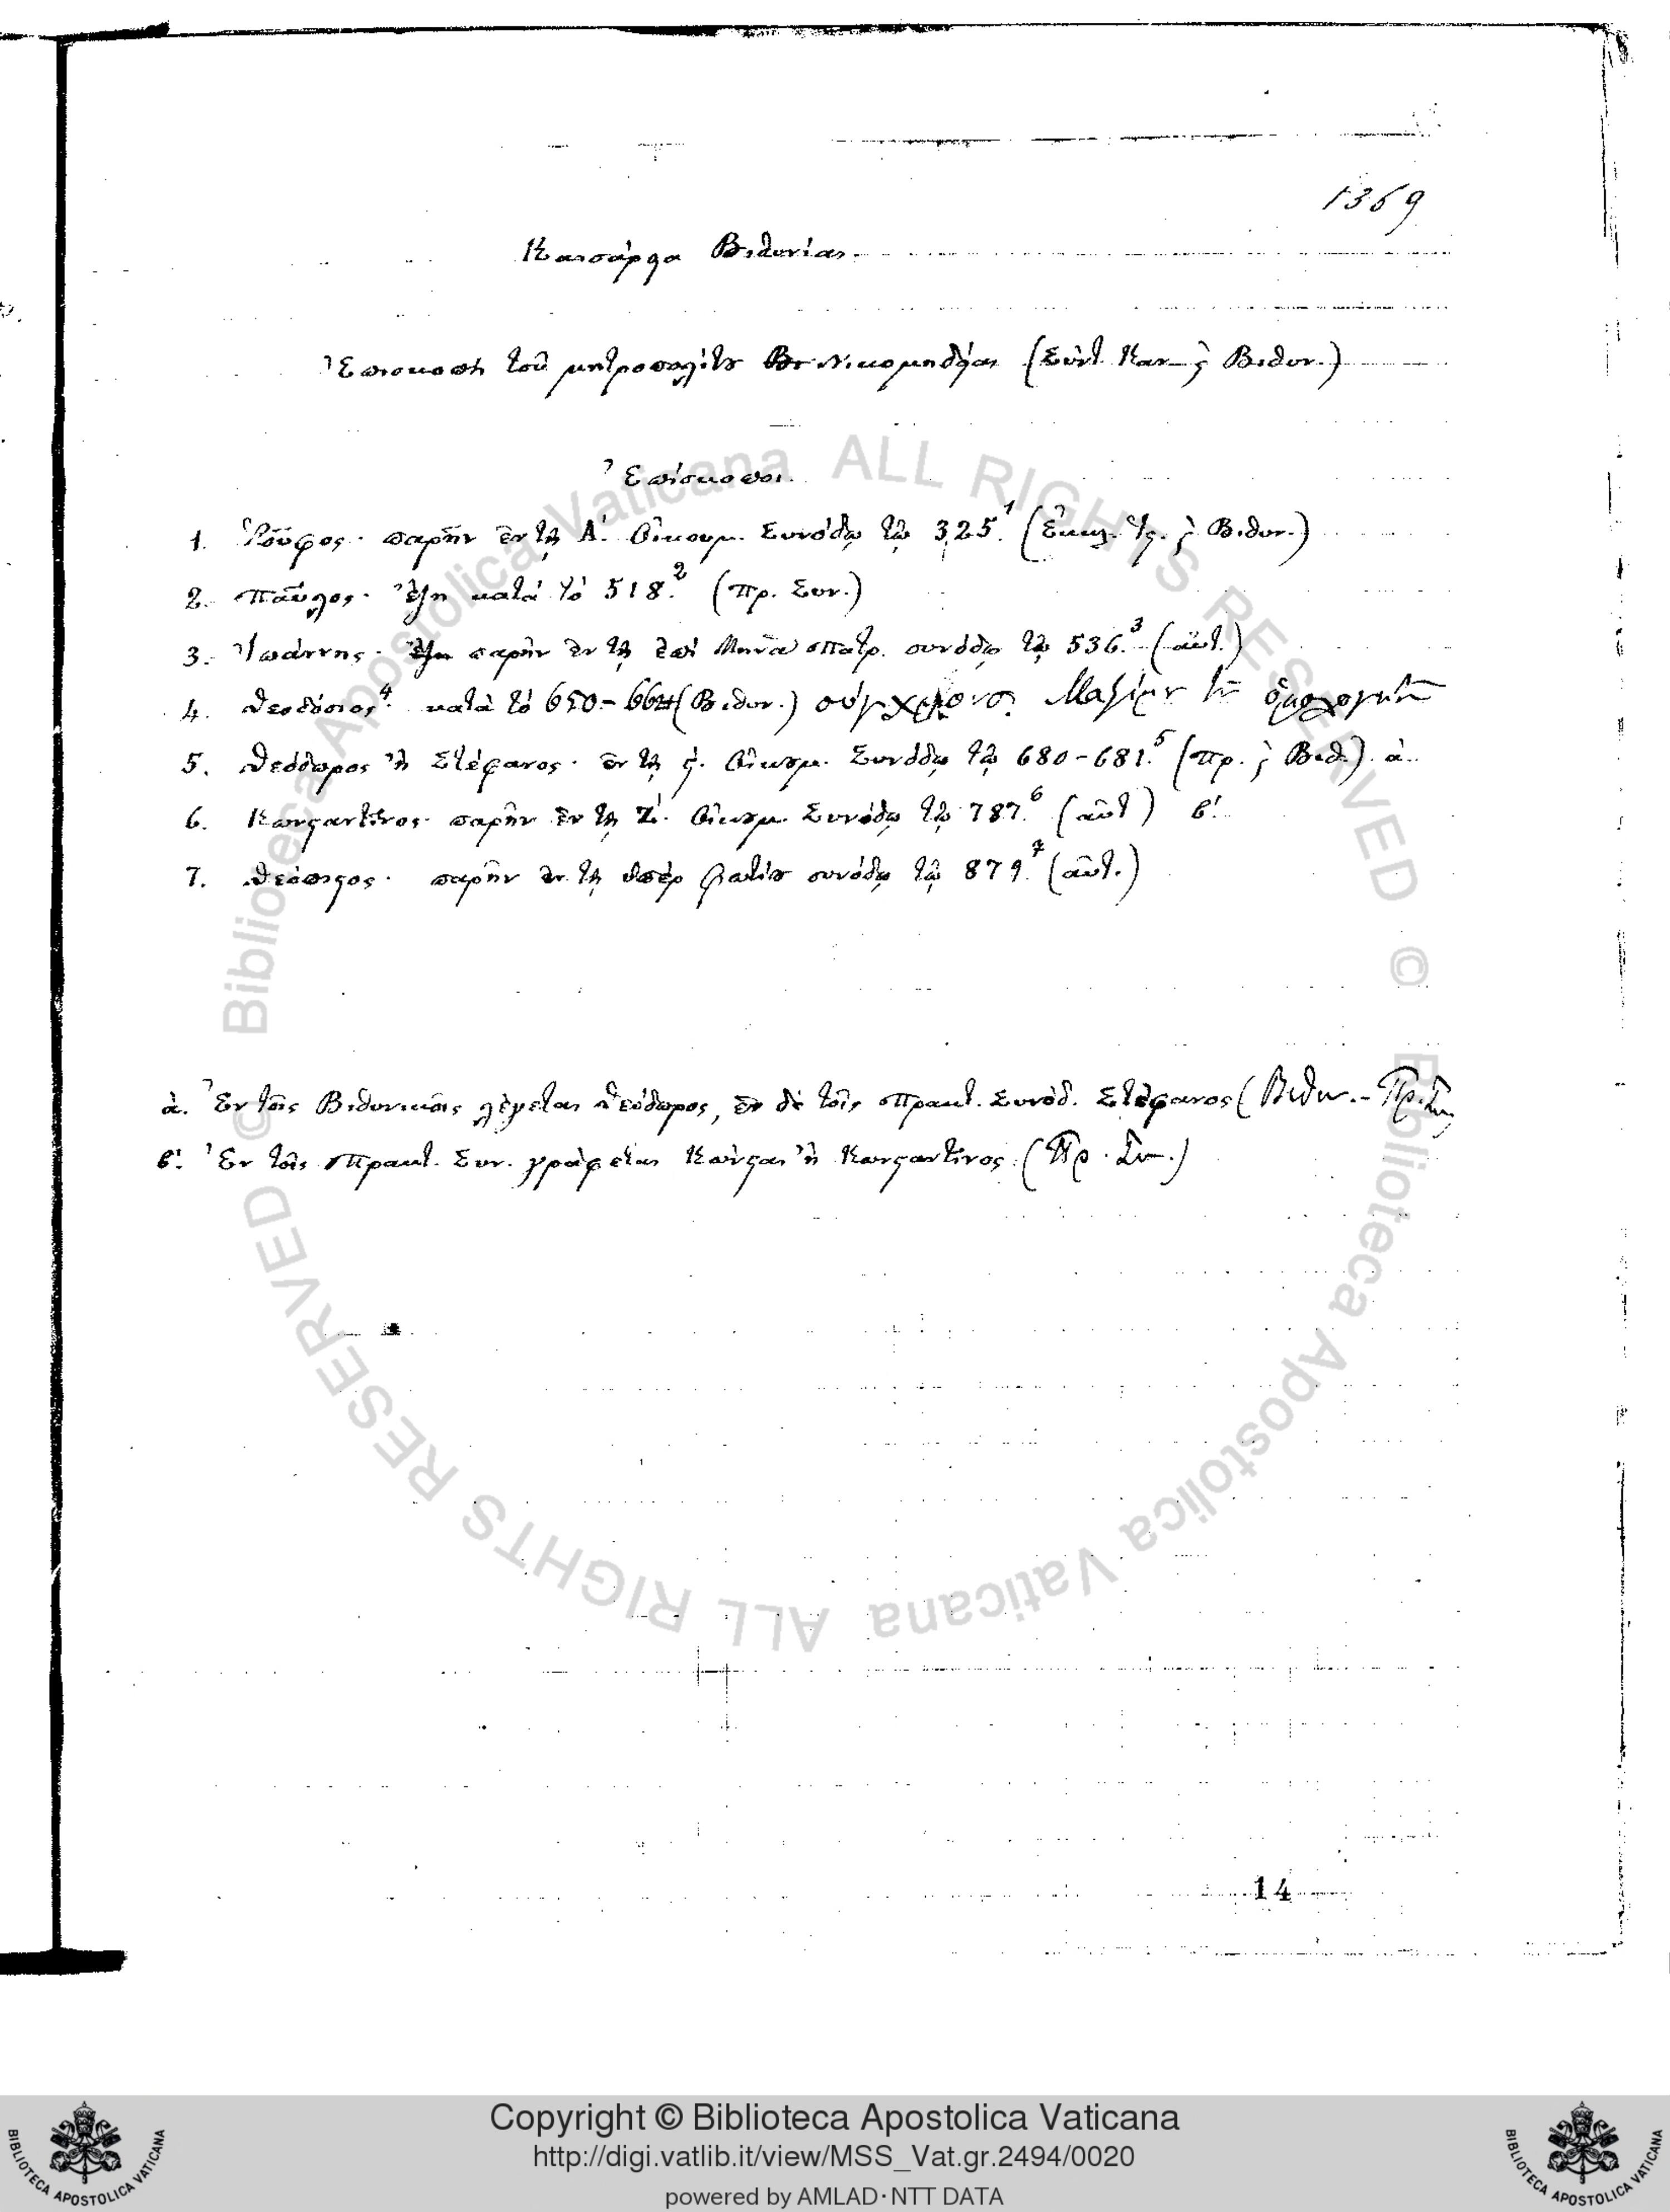 1369
Καισάρεια Βιθυνίας.
Ἐπισκοπὴ τοῦ μητροπολίτου Νικομηδείας (Σύντ. Καν. ϛ Βιθυν.)
Ἐπίσκοποι.
1. Ῥοῦφος· παρῆν ἐν τῇ Α΄. Οἰκουμ. Συνόδῳ τῷ 325.¹ (Ἐκκλ. Ἱς. ϛ Βιθυν.)
2. Παῦλος· ἔζη κατὰ τὸ 518.² (Πρ. Συν.)
3. Ἰωάννης· παρῆν ἐν τῇ ἐπὶ Μηνᾶ Πατρ. συνόδῳ τῷ 536.³ (αὐτ.)
4. Θεοδόσιος⁴. κατὰ τὸ 650-664 (Βιθυν.) σύγχρονος Μαξίμου τοῦ ὁμολογητοῦ
5. Θεόδωρος ἢ Στέφανος· ἐν τῇ ϛ΄. Οἰκουμ. Συνόδῳ τῷ 680-681.⁵ (Πρ. ϛ Βιθ.) α΄.
6. Κωνςαντῖνος· παρῆν ἐν τῇ Ζ΄. Οἰκουμ. Συνόδῳ τῷ 787.⁶ (αὐτ.) β΄.
7. Θεόφιλος· παρῆν ἐν τῇ ὑπὲρ Φωτίου συνόδῳ τῷ 879.⁷ (αὐτ.)
α΄. Ἐν τοῖς Βιθυνικοῖς λέγεται Θεόδωρος, ἐν δὲ τοῖς Πρακτ. Συνόδ. Στέφανος (Βιθυν.- Πρ. Συν.)
β΄. Ἐν τοῖς Πρακτ. Συν. γράφεται Κώνςας ἢ Κωνςαντῖνος. (Πρ. Συν.)
14
© Biblioteca Apostolica Vaticana ALL RIGHTS RESERVED © Biblioteca Apostolica Vaticana ALL RIGHTS RESERVED
Copyright © Biblioteca Apostolica Vaticana
http://digi.vatlib.it/view/MSS_Vat.gr.2494/0020
powered by AMLAD·NTT DATA
BIBLIOTECA APOSTOLICA VATICANA
BIBLIOTECA APOSTOLICA VATICANA